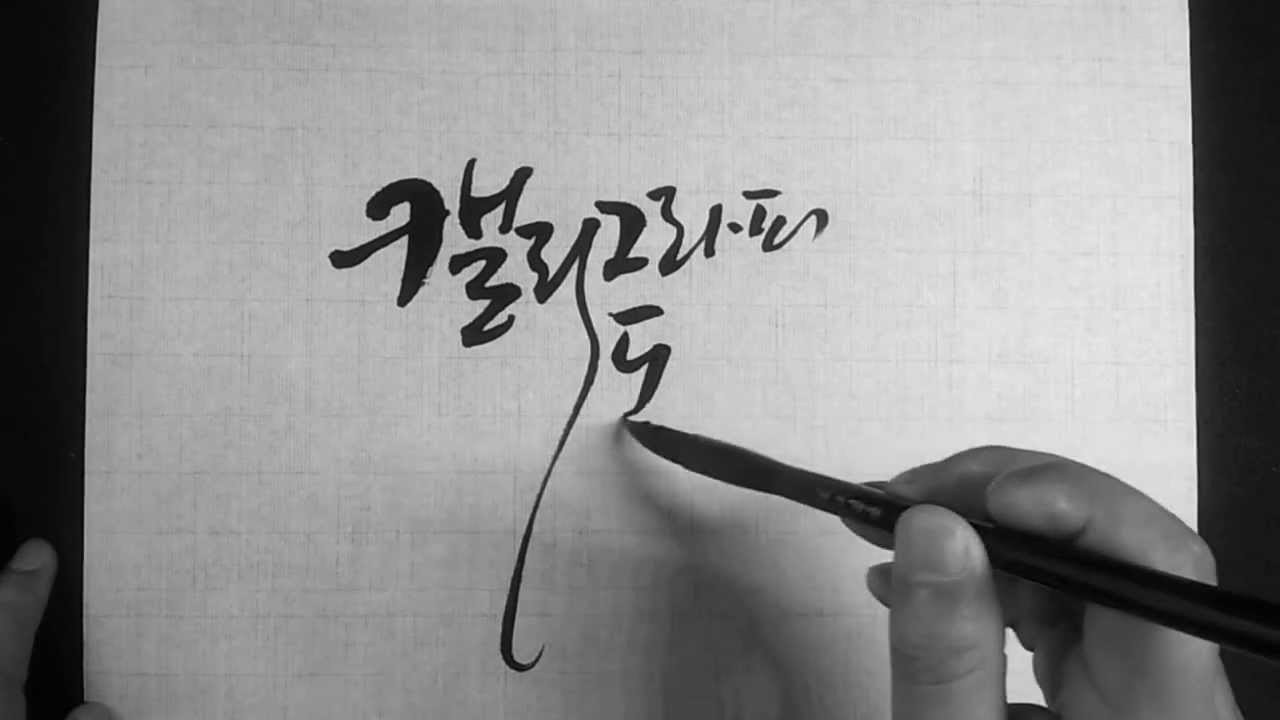 캘리그라피
두